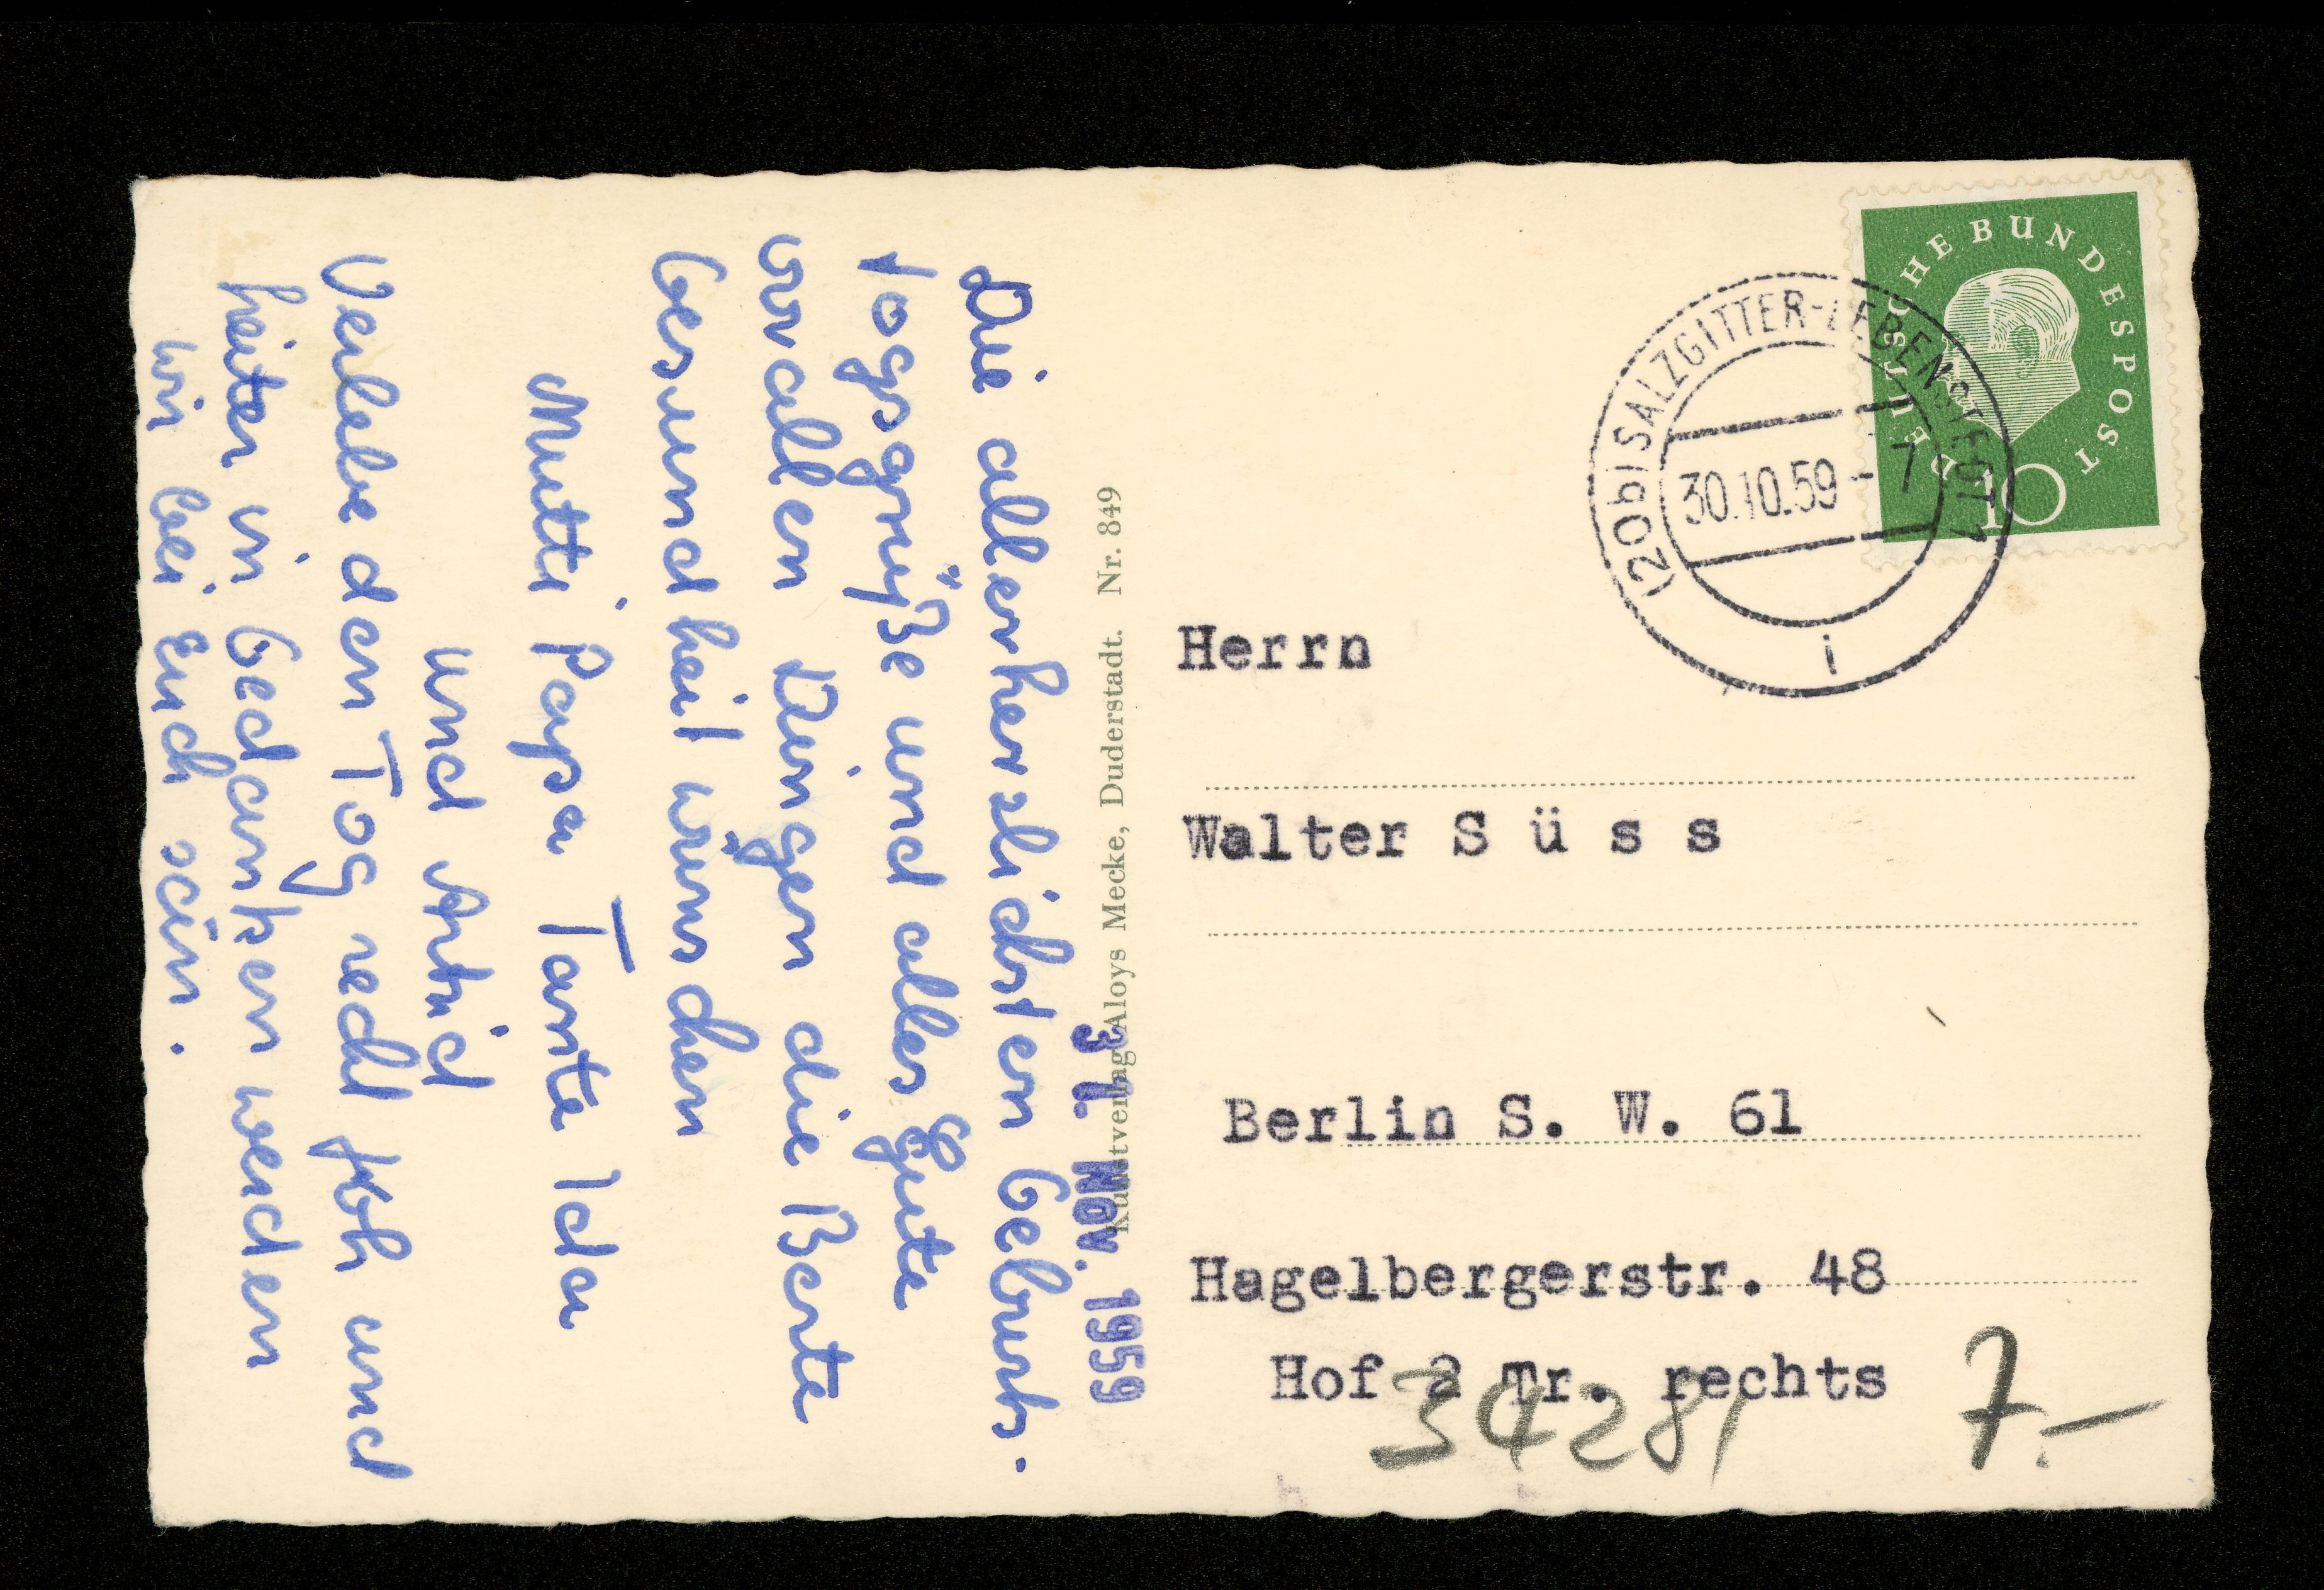 Die allerherzlichsten Geburts-
tagsgrüße und alles Gute
vor allen Dingen die Beste
Gesundheit wünschen
Mutti Papa Tante Ida
und
Verlebe den Tag recht froh und
heiter in Gedanken werden
wir bei Euch sein.
Kunstverlag Aloys Mecke, Duderstadt. Nr. 849
3 1. Nov. 1959
DEUTSCHE BUNDESPOST
10
(20b) SALZGITTER-LEBENSTEDT 1
30.10.59-7
i
Herrn
Walter S ü s s
Berlin S. W. 61
Hagelbergerstr. 48
Hof 2 Tr. rechts
34281
7.-